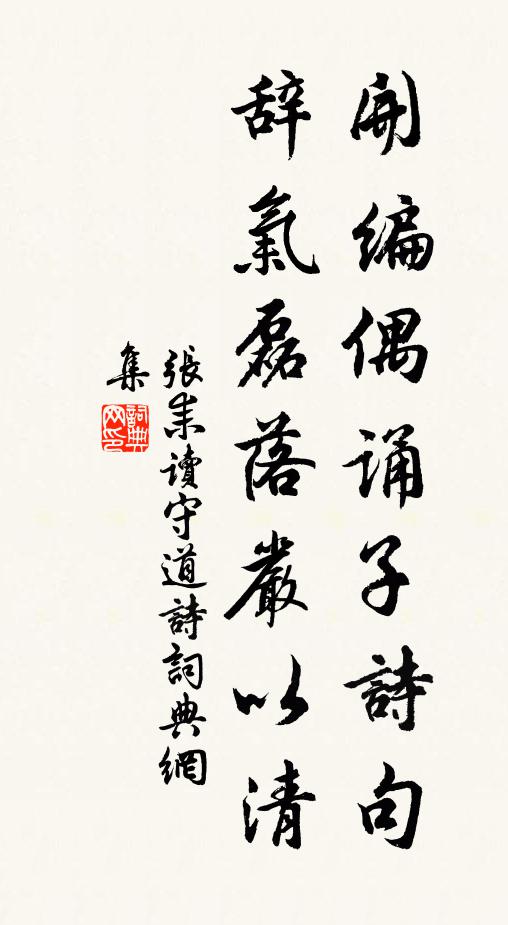 開編偶誦子詩句
辞氣磊落嚴以清
張耒讀守道詩詞典網
集
詞典网印